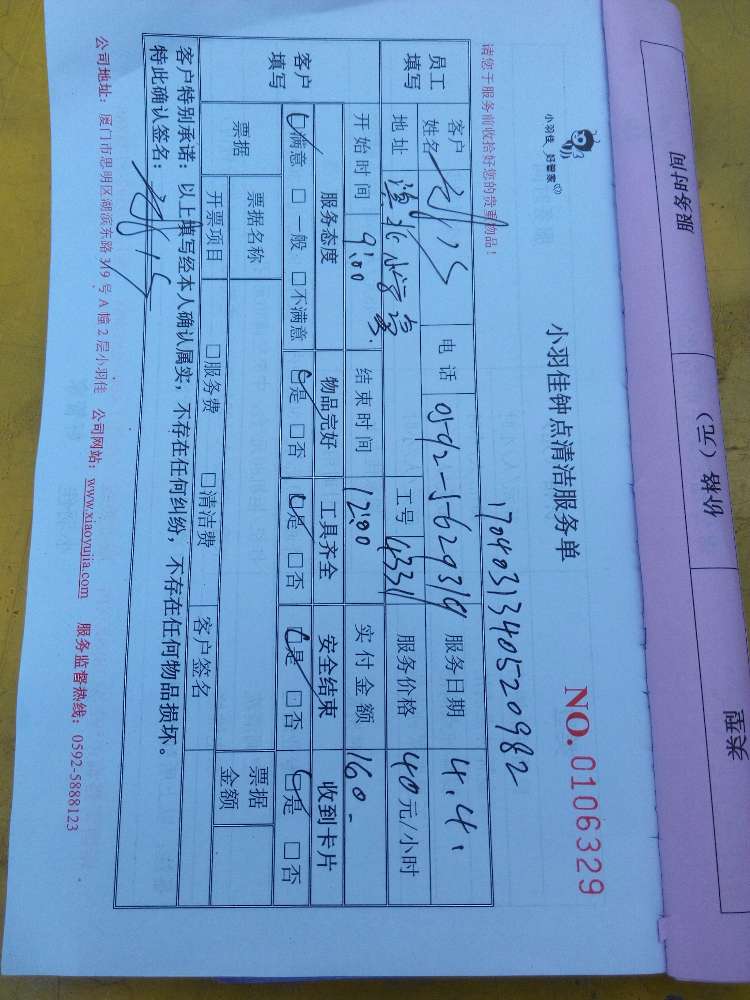 服务时间
价格（元）
类型
小羽佳 好管家
小羽佳钟点清洁服务单
NO. 0106329
请您于服务前收拾好您的贵重物品！
17040313405209 82
员工填写
客户姓名
电话 0592-5629319
服务日期 4.4
地址
工号 4331
服务价格 40元/小时
开始时间 9:00
结束时间 12:00
实付金额 160.
客户填写
服务态度 物品完好 工具齐全 安全结束 收到卡片
□满意 □一般 □不满意 □是 □否 □是 □否 □是 □否 □是 □否
票据
票据名称
票据金额
开票项目 □服务费 □清洁费 客户签名
客户特别承诺：以上填写经本人确认属实，不存在任何纠纷，不存在任何物品损坏。
特此确认签名：
公司地址：厦门市思明区湖滨东路319号A幢2层小羽佳 公司网站：www.xiaoyujia.com 服务监督热线：0592-5888123